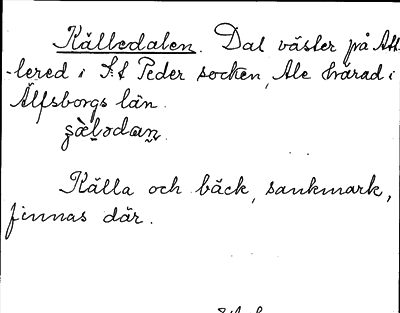 Källedalen. Dal väster på Att
-lered i S:t Peder socken, Ale härad i
Älfsborgs län.
Källa och bäck, sankmark,
finnas där.